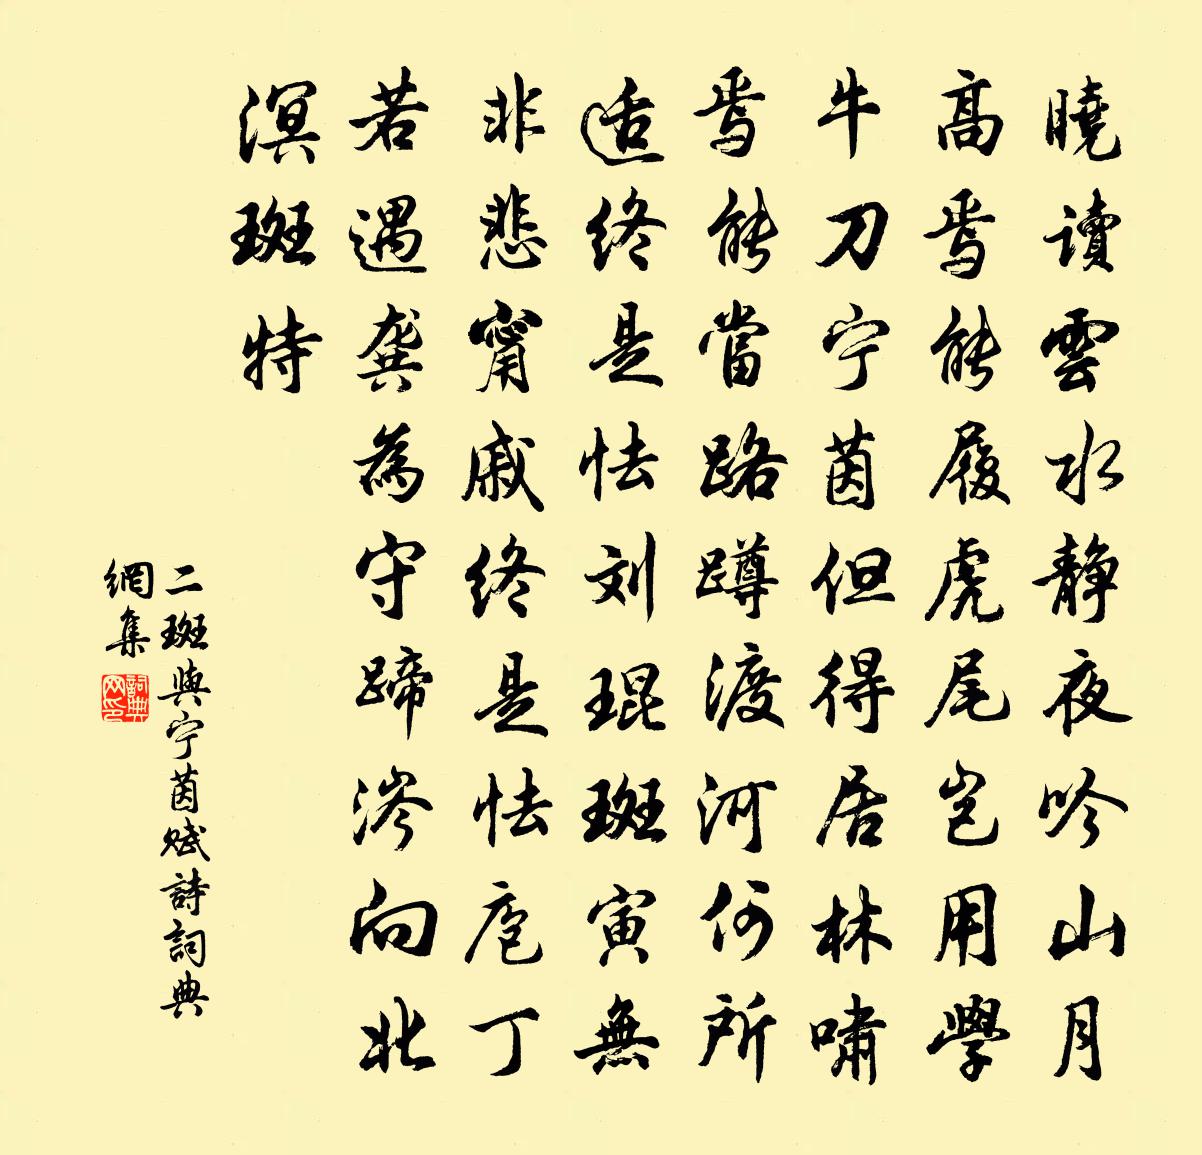 曉讀雲水靜夜吟山月
高焉能履虎尾豈用學
牛刀宁茵但得居林嘯
焉能當路蹲渡河何所
适終是怯刘琨斑寅無
非悲甯戚終是怯庖丁
若遇龚為守蹄涔向北
溟斑特
二斑與宁茵赋詩詞典
網集
詞典
网印